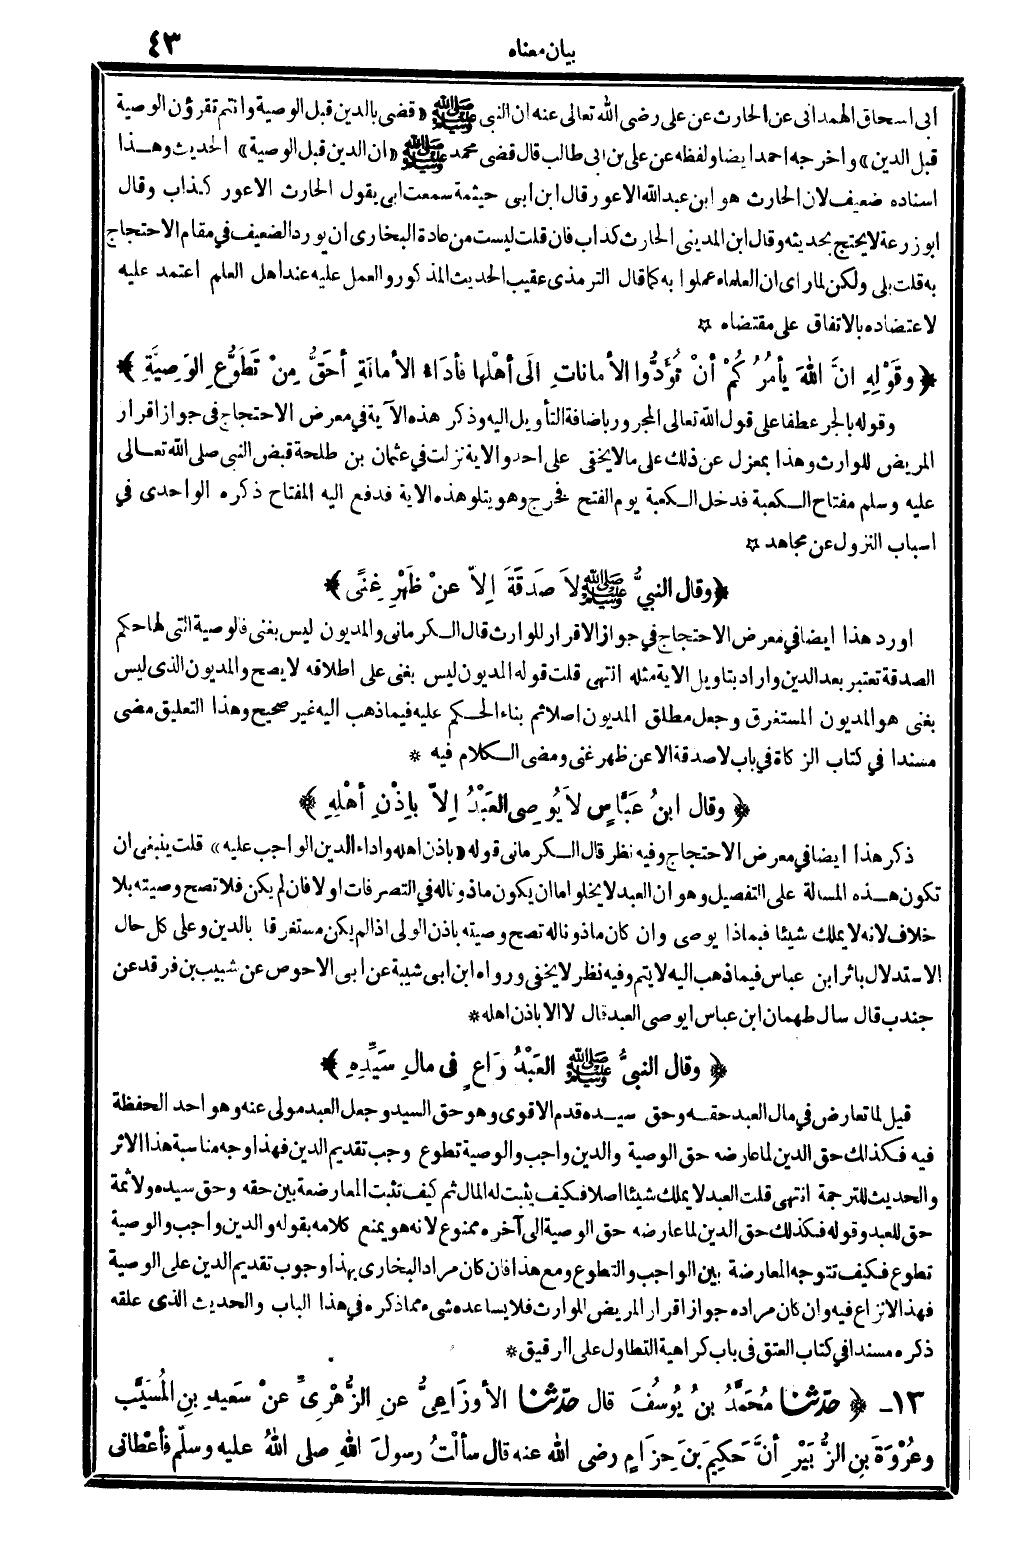 بيان معناه
٤٣
ابى اسحاق الهمدانى عن الحارث عن على رضى الله تعالى عنه ان النبى ﷺ «قضى بالدين قبل الوصية وانتم تقرؤن الوصية
قبل الدين» واخرجه احمد ايضا ولفظه عن على بن ابى طالب قال قضى محمد ﷺ «ان الدين قبل الوصية» الحديث وهذا
اسناده ضعيف لان الحارث هو ابن عبدالله الاعور قال ابن ابى خيثمة سمعت ابى يقول الحارث الاعور كذاب وقال
ابو زرعة لايحتج بحديثه وقال ابن المدينى الحارث كذاب فان قلت ليست من عادة البخارى ان يورد الضعيف في مقام الاحتجاج
به قلت بلى ولكن لما راى ان العلماء عملوا به كما قال الترمذى عقيب الحديث المذكور والعمل عليه عند اهل العلم اعتمد عليه
لاعتضاده بالاتفاق على مقتضاه ✩
﴿ وقَوْلِهِ انَّ اللهَ يأمُرُكُمْ أنْ تُؤَدُّوا الأماناتِ الَى أهْلها فأدَاءُ الأمانَةِ أحَقُّ مِنْ تَطَوُّعِ الوَصِيَّةِ ﴾
وقوله بالجر عطفا على قول الله تعالى المجرور باضافة التأويل اليه وذكر هذه الآية في معرض الاحتجاج فى جواز اقرار
المريض للوارث وهذا بمعزل عن ذلك على مالايخفى على احد والاية نزلت في عثمان بن طلحة قبض النبى صلى الله تعالى
عليه وسلم مفتاح الكعبة فدخل الكعبة يوم الفتح فخرج وهو يتلو هذه الاية فدفع اليه المفتاح ذكره الواحدى في
اسباب النزول عن مجاهد ✩
﴿وقال النبيُّ ﷺ لاَ صَدَقَةَ اِلاّ عنْ ظَهْرِ غِنًى﴾
اورد هذا ايضا في معرض الاحتجاج في جواز الاقرار للوارث قال الكرمانى والمديون ليس بغنى فالوصية التى لها حكم
الصدقة تعتبر بعد الدين واراد بتاويل الاية مثله انتهى قلت قوله المديون ليس بغنى على اطلاقه لايصح والمديون الذى ليس
بغنى هو المديون المستغرق وجعل مطلق المديون اصلا ثم بناء الحكم عليه فيما ذهب اليه غير صحيح وهذا التعليق مضى
مسندا في كتاب الزكاة في باب لاصدقة الا عن ظهر غنى ومضى الكلام فيه *
﴿ وقال ابنُ عَبَّاسٍ لاَ يُوصِى العَبْدُ اِلاّ بإِذْنِ أهْلِهِ ﴾
ذكر هذا ايضا في معرض الاحتجاج وفيه نظر قال الكرمانى قوله «باذن اهله واداء الدين الواجب عليه» قلت ينبغى ان
تكون هذه المسالة على التفصيل وهو ان العبد لا يخلو اما ان يكون ماذونا له في التصرفات او لا فان لم يكن فلا تصح وصيته بلا
خلاف لانه لايملك شيئا فبماذا يوصى وان كان ماذونا له تصح وصيته باذن الولى اذا لم يكن مستغرقا بالدين وعلى كل حال
الاستدلال باثر ابن عباس فيما ذهب اليه لايتم وفيه نظر لايخفى ورواه ابن ابى شيبة عن ابى الاحوص عن شبيب بن فرقد عن
جندب قال سال طهمان ابن عباس ايوصى العبد قال لا الا باذن اهله *
﴿ وقال النبيُّ ﷺ العَبْدُ رَاعٍ فى مالِ سَيِّدِهِ ﴾
قيل لما تعارض في مال العبد حقه وحق سيده قدم الاقوى وهو حق السيد وجعل العبد مولى عنه وهو احد الحفظة
فيه فكذلك حق الدين لما عارضه حق الوصية والدين واجب والوصية تطوع وجب تقديم الدين فهذا وجه مناسبة هذا الاثر
والحديث للترجمة انتهى قلت العبد لا يملك شيئا اصلا فكيف يثبت له المال ثم كيف تثبت المعارضة بين حقه وحق سيده ولا ثمة
حق للعبد وقوله فكذلك حق الدين لما عارضه حق الوصية الى آخره ممنوع لانه هو يمنع كلامه بقوله والدين واجب والوصية
تطوع فكيف تتوجه المعارضة بين الواجب والتطوع ومع هذا فان كان مراد البخارى بهذا وجوب تقديم الدين على الوصية
فهذا لا نزاع فيه وان كان مراده جواز اقرار المريض للوارث فلا يساعده شىء مما ذكره في هذا الباب والحديث الذى علقه
ذكره مسندا في كتاب العتق فى باب كراهية التطاول على الرقيق *
١٣- ﴿ حدّثنا مُحَمَّدُ بنُ يُوسُفَ قال حدّثنا الأوزَاعِىُّ عنِ الزُّهْرِىِّ عنْ سَعيدِ بنِ المُسَيَّبِ
وعُرْوَةَ بنِ الزُّبَيْرِ أنَّ حَكِيمَ بنَ حِزَامٍ رضى الله عنه قال سألْتُ رسولَ اللهِ صلى اللهُ عليه وسلّم فأعْطانى